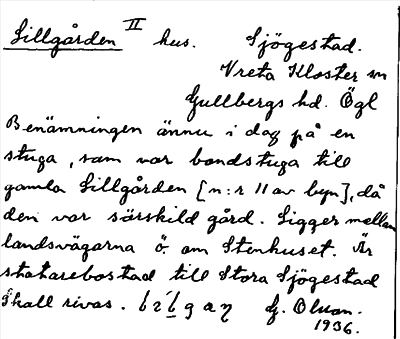 Lillgården II hus. Sjögestad.
Vreta Kloster sn
Gullbergs hd. Ögl
Benämningen ännu i dag på en
stuga, som var bondstuga till
gamla Lillgården [n:r 11 av byn], då
den var särskild gård. Ligger mellan
landsvägarna ö. om Stenhuset. Är
statarebostad till Stora Sjögestad
Skall rivas. G. Olson.
1936.